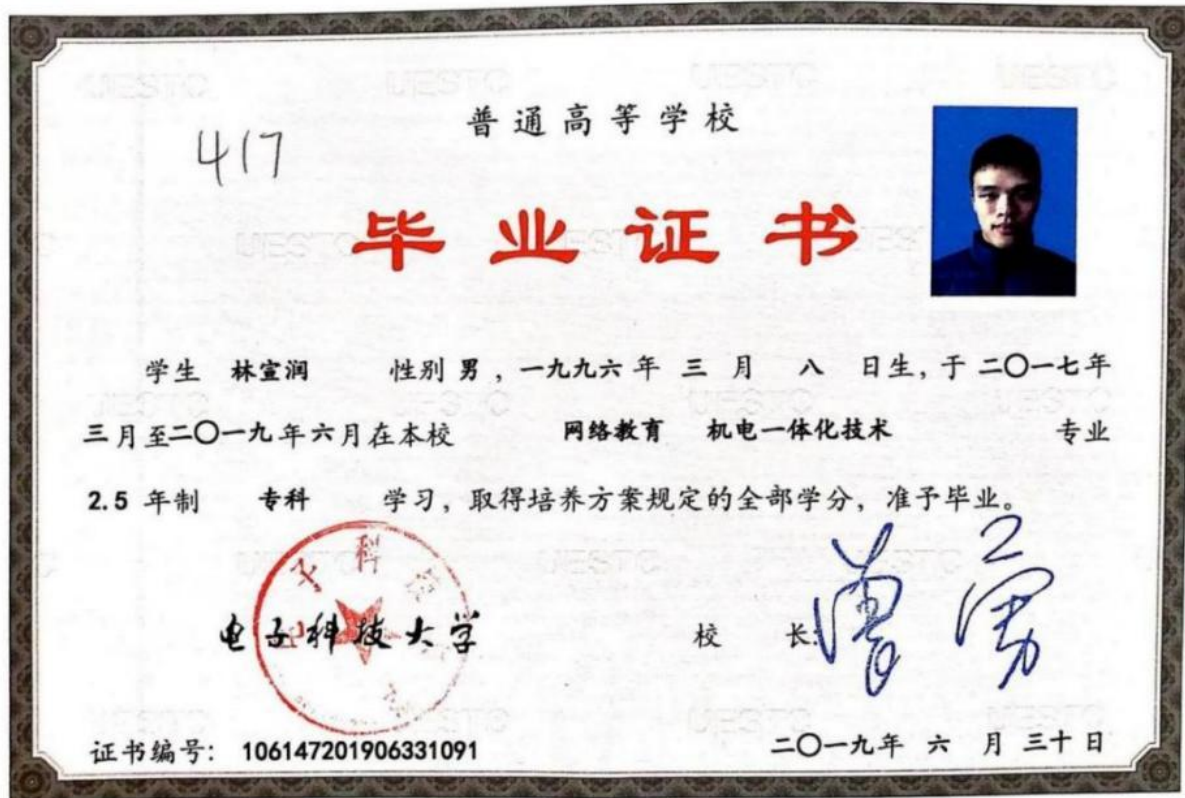 417
普通高等学校
毕业证书
学生 林宣润 性别 男，一九九六年 三 月 八 日生，于 二〇一七年
三月至二〇一九年六月在本校 网络教育 机电一体化技术 专业
2.5 年制 专科 学习，取得培养方案规定的全部学分，准予毕业。
电子科技大学
校 长：曾勇
证书编号： 106147201906331091
二〇一九年 六 月 三十日
UESTC